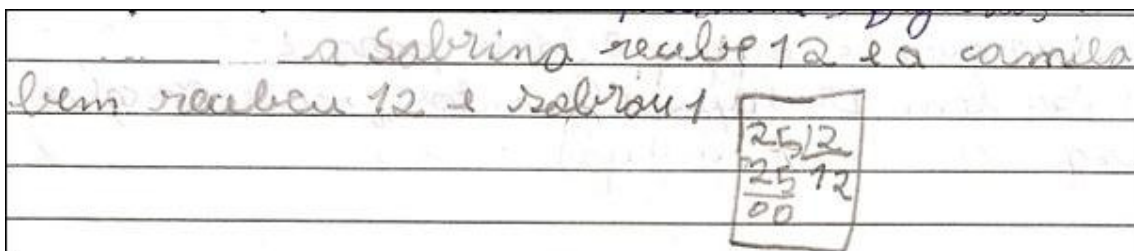 a Sabrina recebe 12 e a camila
bem recebeu 12 e sobrou 1
25 12
25 12
00